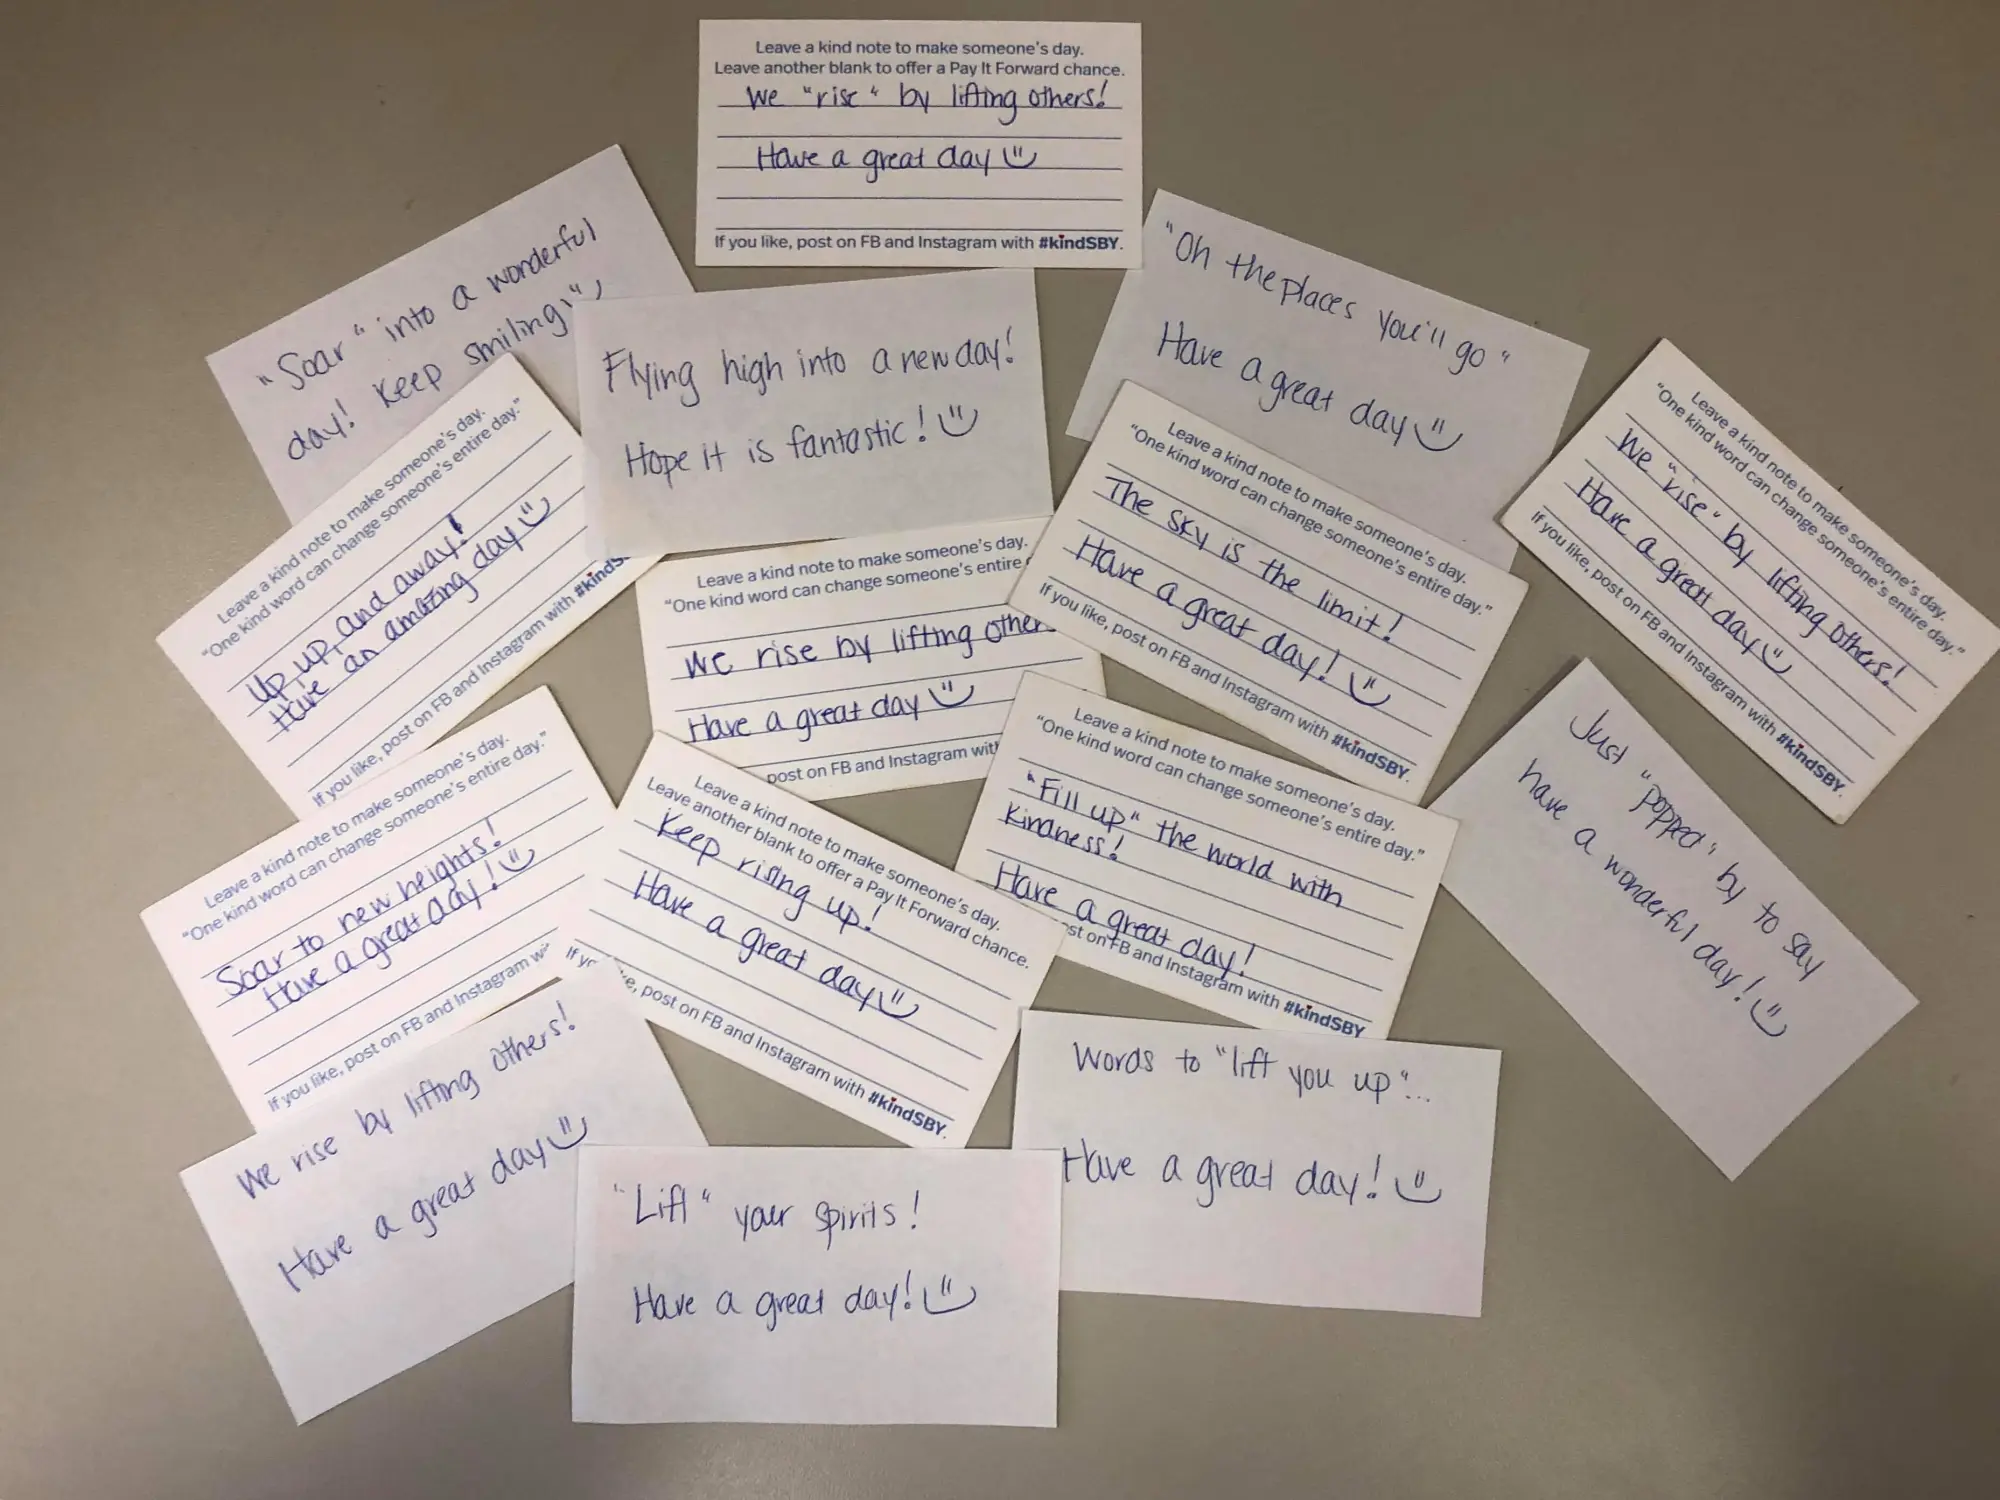 Leave a kind note to make someone's day.
Leave another blank to offer a Pay It Forward chance.
We "rise" by lifting others!
Have a great day
If you like, post on FB and Instagram with #kindSBY.
"Soar" into a wonderful
day! Keep smiling
Flying high into a new day!
Hope it is fantastic!
"Oh the places you'll go"
Have a great day
Leave a kind note to make someone's day.
"One kind word can change someone's entire day."
We "rise" by lifting others!
Have a great day
If you like, post on FB and Instagram with #kindSBY.
Leave a kind note to make someone's day.
"One kind word can change someone's entire day."
Up, up, and away!
Have an amazing day
If you like, post on FB and Instagram with #kindS
Leave a kind note to make someone's day.
"One kind word can change someone's entire
We rise by lifting other
Have a great day
post on FB and Instagram wit
Leave a kind note to make someone's day.
"One kind word can change someone's entire day."
The sky is the limit!
Have a great day!
If you like, post on FB and Instagram with #kindSBY.
Leave a kind note to make someone's day.
"One kind word can change someone's entire day."
Soar to new heights!
Have a great day!
If you like, post on FB and Instagram w
Leave a kind note to make someone's day.
Leave another blank to offer a Pay It Forward chance.
Keep rising up!
Have a great day
If y ke, post on FB and Instagram with #kindSBY.
Leave a kind note to make someone's day.
"One kind word can change someone's entire day."
"Fill up" the world with
kindness!
Have a great day!
st on FB and Instagram with #kindSBY
Just "popped" by to say
have a wonderful day!
We rise by lifting others!
Have a great day
"Lift" your spirits!
Have a great day!
Words to "lift you up"...
Have a great day!